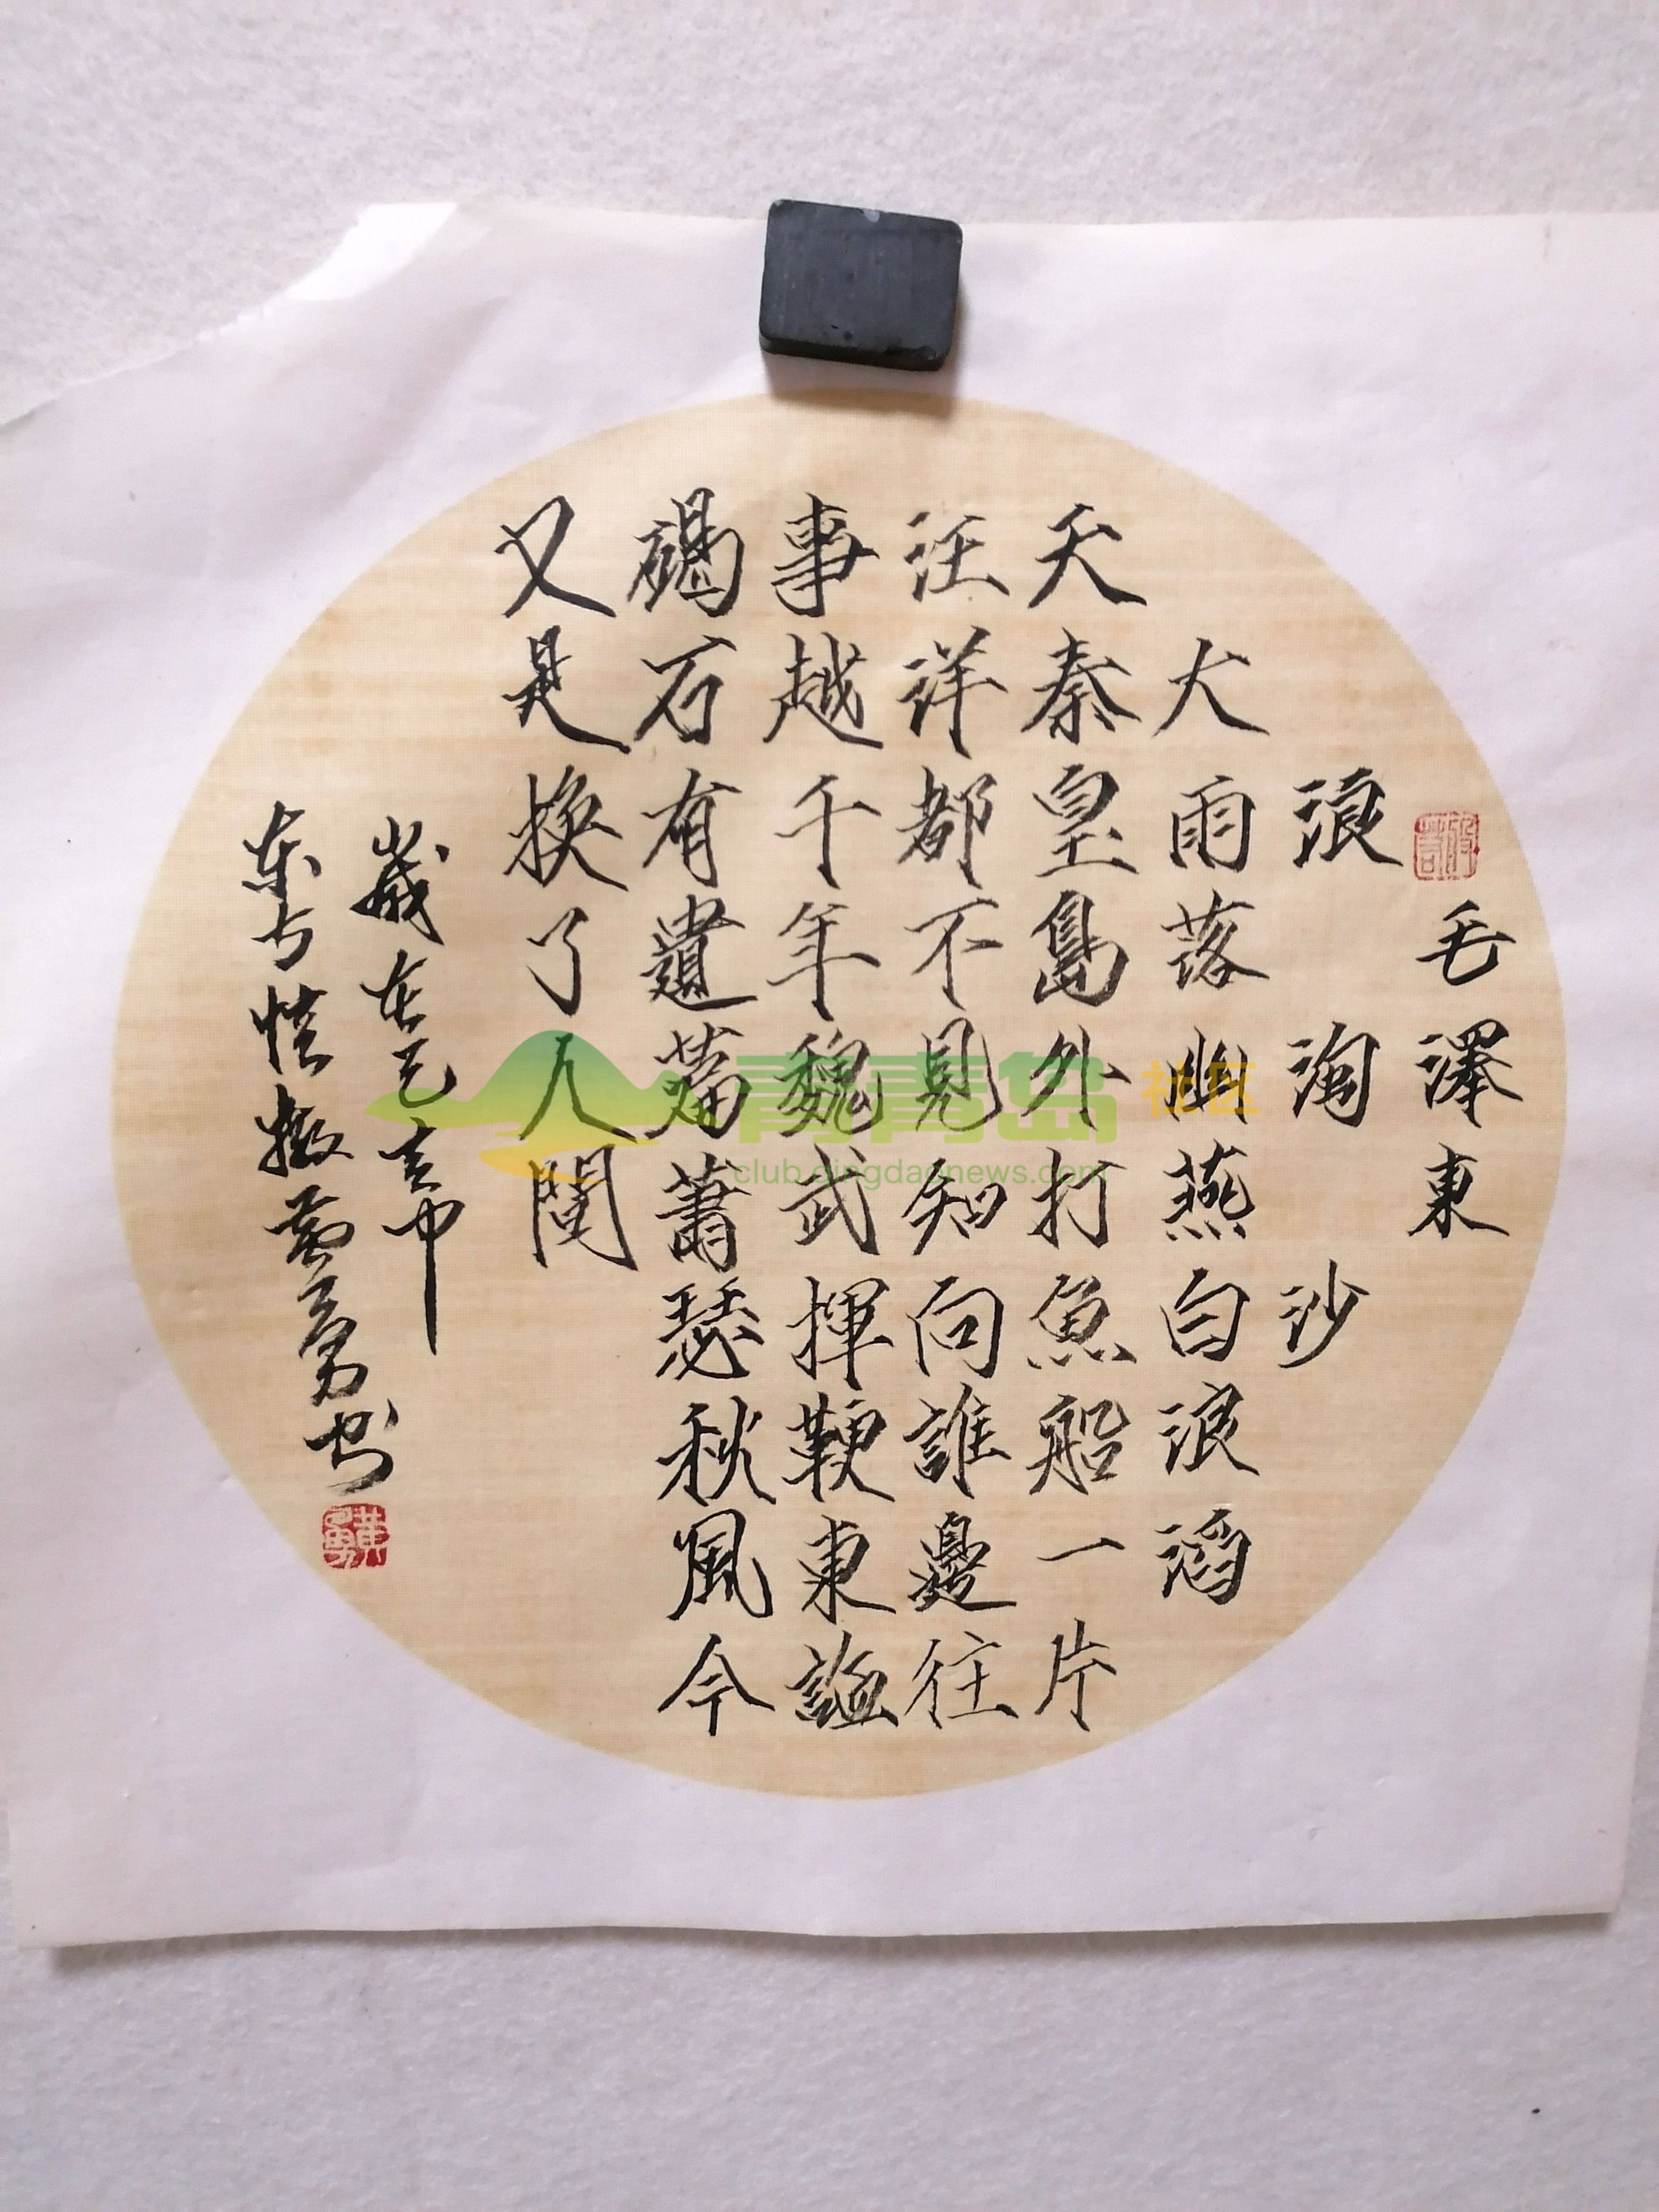 毛澤東
浪淘沙
大雨落幽燕白浪滔
天秦皇島外打魚船一片
汪洋都不見知向誰邊往
事越千年魏武揮鞭東臨
碣石有遺篇蕭瑟秋風今
又是換了人間
歲在己亥
黄勇书
黃勇
青青岛 社区
club.qingdaonews.com